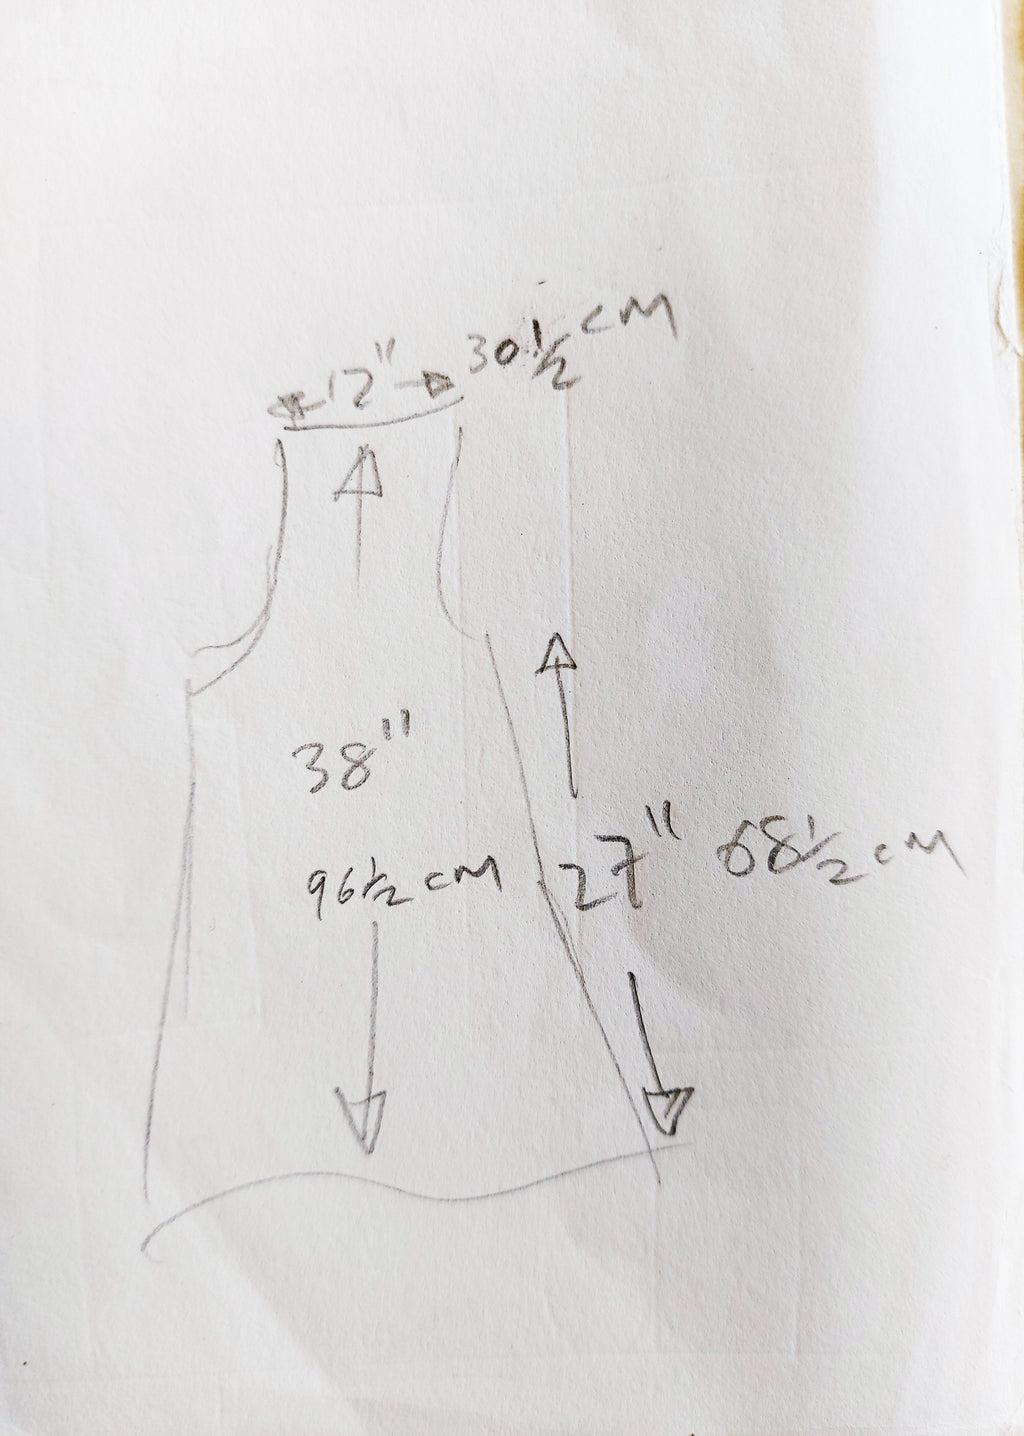 12" 30½ cm
38"
96½ cm
27" 68½ cm